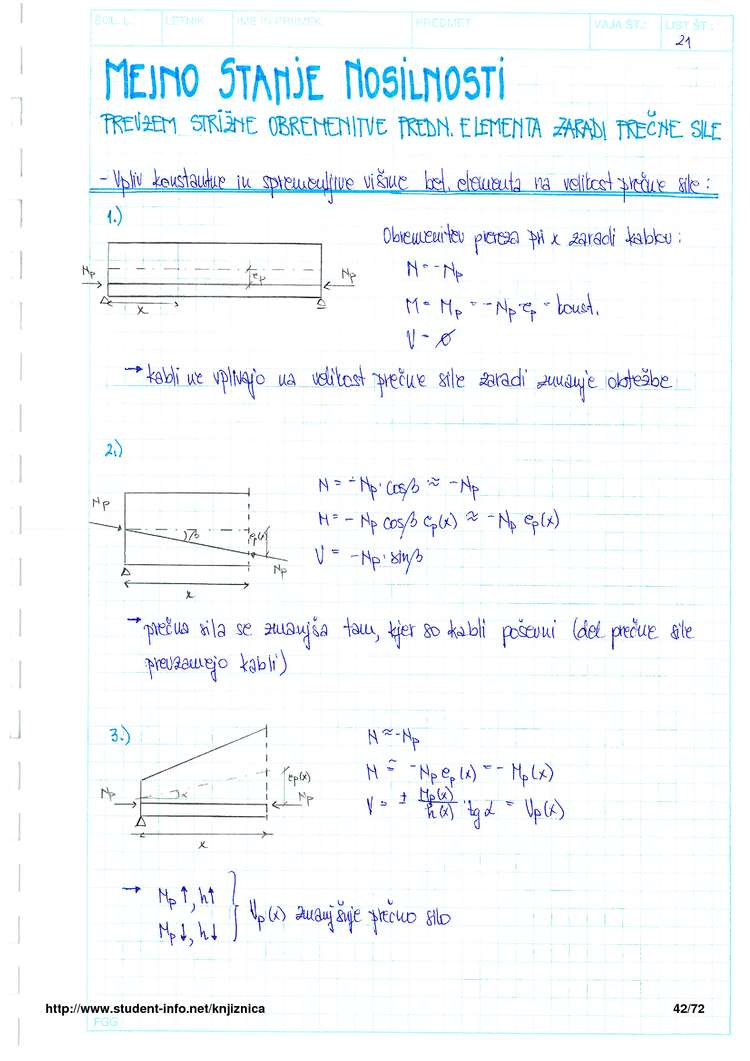 ŠOL. L. LETNIK IME IN PRIIMEK PREDMET VAJA ŠT.: LIST ŠT.:
21
MEJNO STANJE NOSILNOSTI
PREVZEM STRIŽNE OBREMENITVE PREDN. ELEMENTA ZARADI PREČNE SILE
- Vpliv konstantne in spremenljive višine bet. elementa na velikost prečne sile:
1.)
Obremenitev prereza pri x zaradi kablov:
Np ep Np
x
N = -Np
M = Mp = -Np·ep = konst.
V = 0
→ kabli ne vplivajo na velikost prečne sile zaradi zunanje obtežbe
2.)
Np β ep(x) Np
x
N = -Np·cosβ ≈ -Np
M = -Np cosβ ep(x) ≈ -Np ep(x)
V = -Np·sinβ
→ prečna sila se zmanjša tam, kjer so kabli poševni (del prečne sile
prevzamejo kabli)
3.)
Np α ep(x) Np
x
N ≈ -Np
M ≈ -Np ep(x) = -Mp(x)
V = ± Mp(x)/h(x) · tgα = Vp(x)
→ Mp↑, h↑
Mp↓, h↓ } Vp(x) zmanjšuje prečno silo
http://www.student-info.net/knjiznica 42/72
FGG